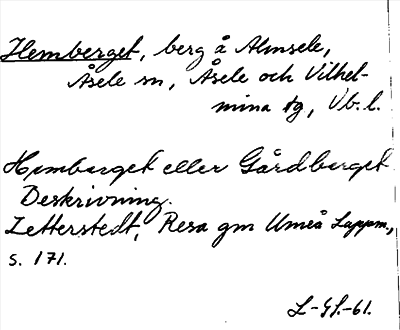 Hemberget, berg å Almsele,
Åsele sn, Åsele och Vilhel-
mina tg, Vb. l.
Hemberget eller Gårdberget
Beskrivning.
Zetterstedt, Resa gm Umeå Lappm.,
s. 171.
L-Gf.-61.